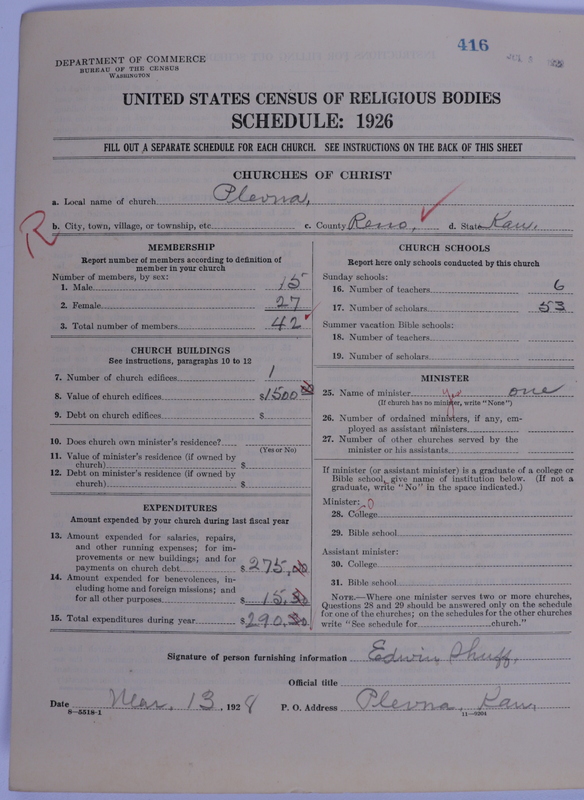 416
DEPARTMENT OF COMMERCE
BUREAU OF THE CENSUS
WASHINGTON
UNITED STATES CENSUS OF RELIGIOUS BODIES
SCHEDULE: 1926
FILL OUT A SEPARATE SCHEDULE FOR EACH CHURCH. SEE INSTRUCTIONS ON THE BACK OF THIS SHEET
CHURCHES OF CHRIST
a. Local name of church Plevna,
b. City, town, village, or township, etc. c. County Reno, d. State Kan,
R
MEMBERSHIP
Report number of members according to definition of
member in your church
Number of members, by sex:
1. Male 15
2. Female 27
3. Total number of members 42
CHURCH BUILDINGS
See instructions, paragraphs 10 to 12
7. Number of church edifices 1
8. Value of church edifices $1500 00
9. Debt on church edifices $
10. Does church own minister's residence?
(Yes or No)
11. Value of minister's residence (if owned by
church) $
12. Debt on minister's residence (if owned by
church) $
EXPENDITURES
Amount expended by your church during last fiscal year
13. Amount expended for salaries, repairs,
and other running expenses; for im-
provements or new buildings; and for
payments on church debt $275,00
14. Amount expended for benevolences, in-
cluding home and foreign missions; and
for all other purposes $ 15,50
15. Total expenditures during year $290,50
CHURCH SCHOOLS
Report here only schools conducted by this church
Sunday schools:
16. Number of teachers 6
17. Number of scholars 53
Summer vacation Bible schools:
18. Number of teachers
19. Number of scholars
MINISTER
25. Name of minister yes one
(If church has no minister, write "None")
26. Number of ordained ministers, if any, em-
ployed as assistant ministers
27. Number of other churches served by the
minister or his assistants
If minister (or assistant minister) is a graduate of a college or
Bible school, give name of institution below. (If not a
graduate, write "No" in the space indicated.)
Minister: 0
28. College
29. Bible school
Assistant minister:
30. College
31. Bible school
NOTE.—Where one minister serves two or more churches,
Questions 28 and 29 should be answered only on the schedule
for one of the churches; on the schedules for the other churches
write "See schedule for church."
Signature of person furnishing information Edwin Shuff,
Official title
Date Mar, 13, 1928 P. O. Address Plevna, Kan,
8—5518-1 11—9204